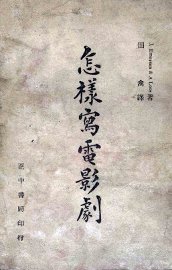 J. Emerson & A. Loos 著
田禽譯
怎樣寫電影劇
正中書局印行